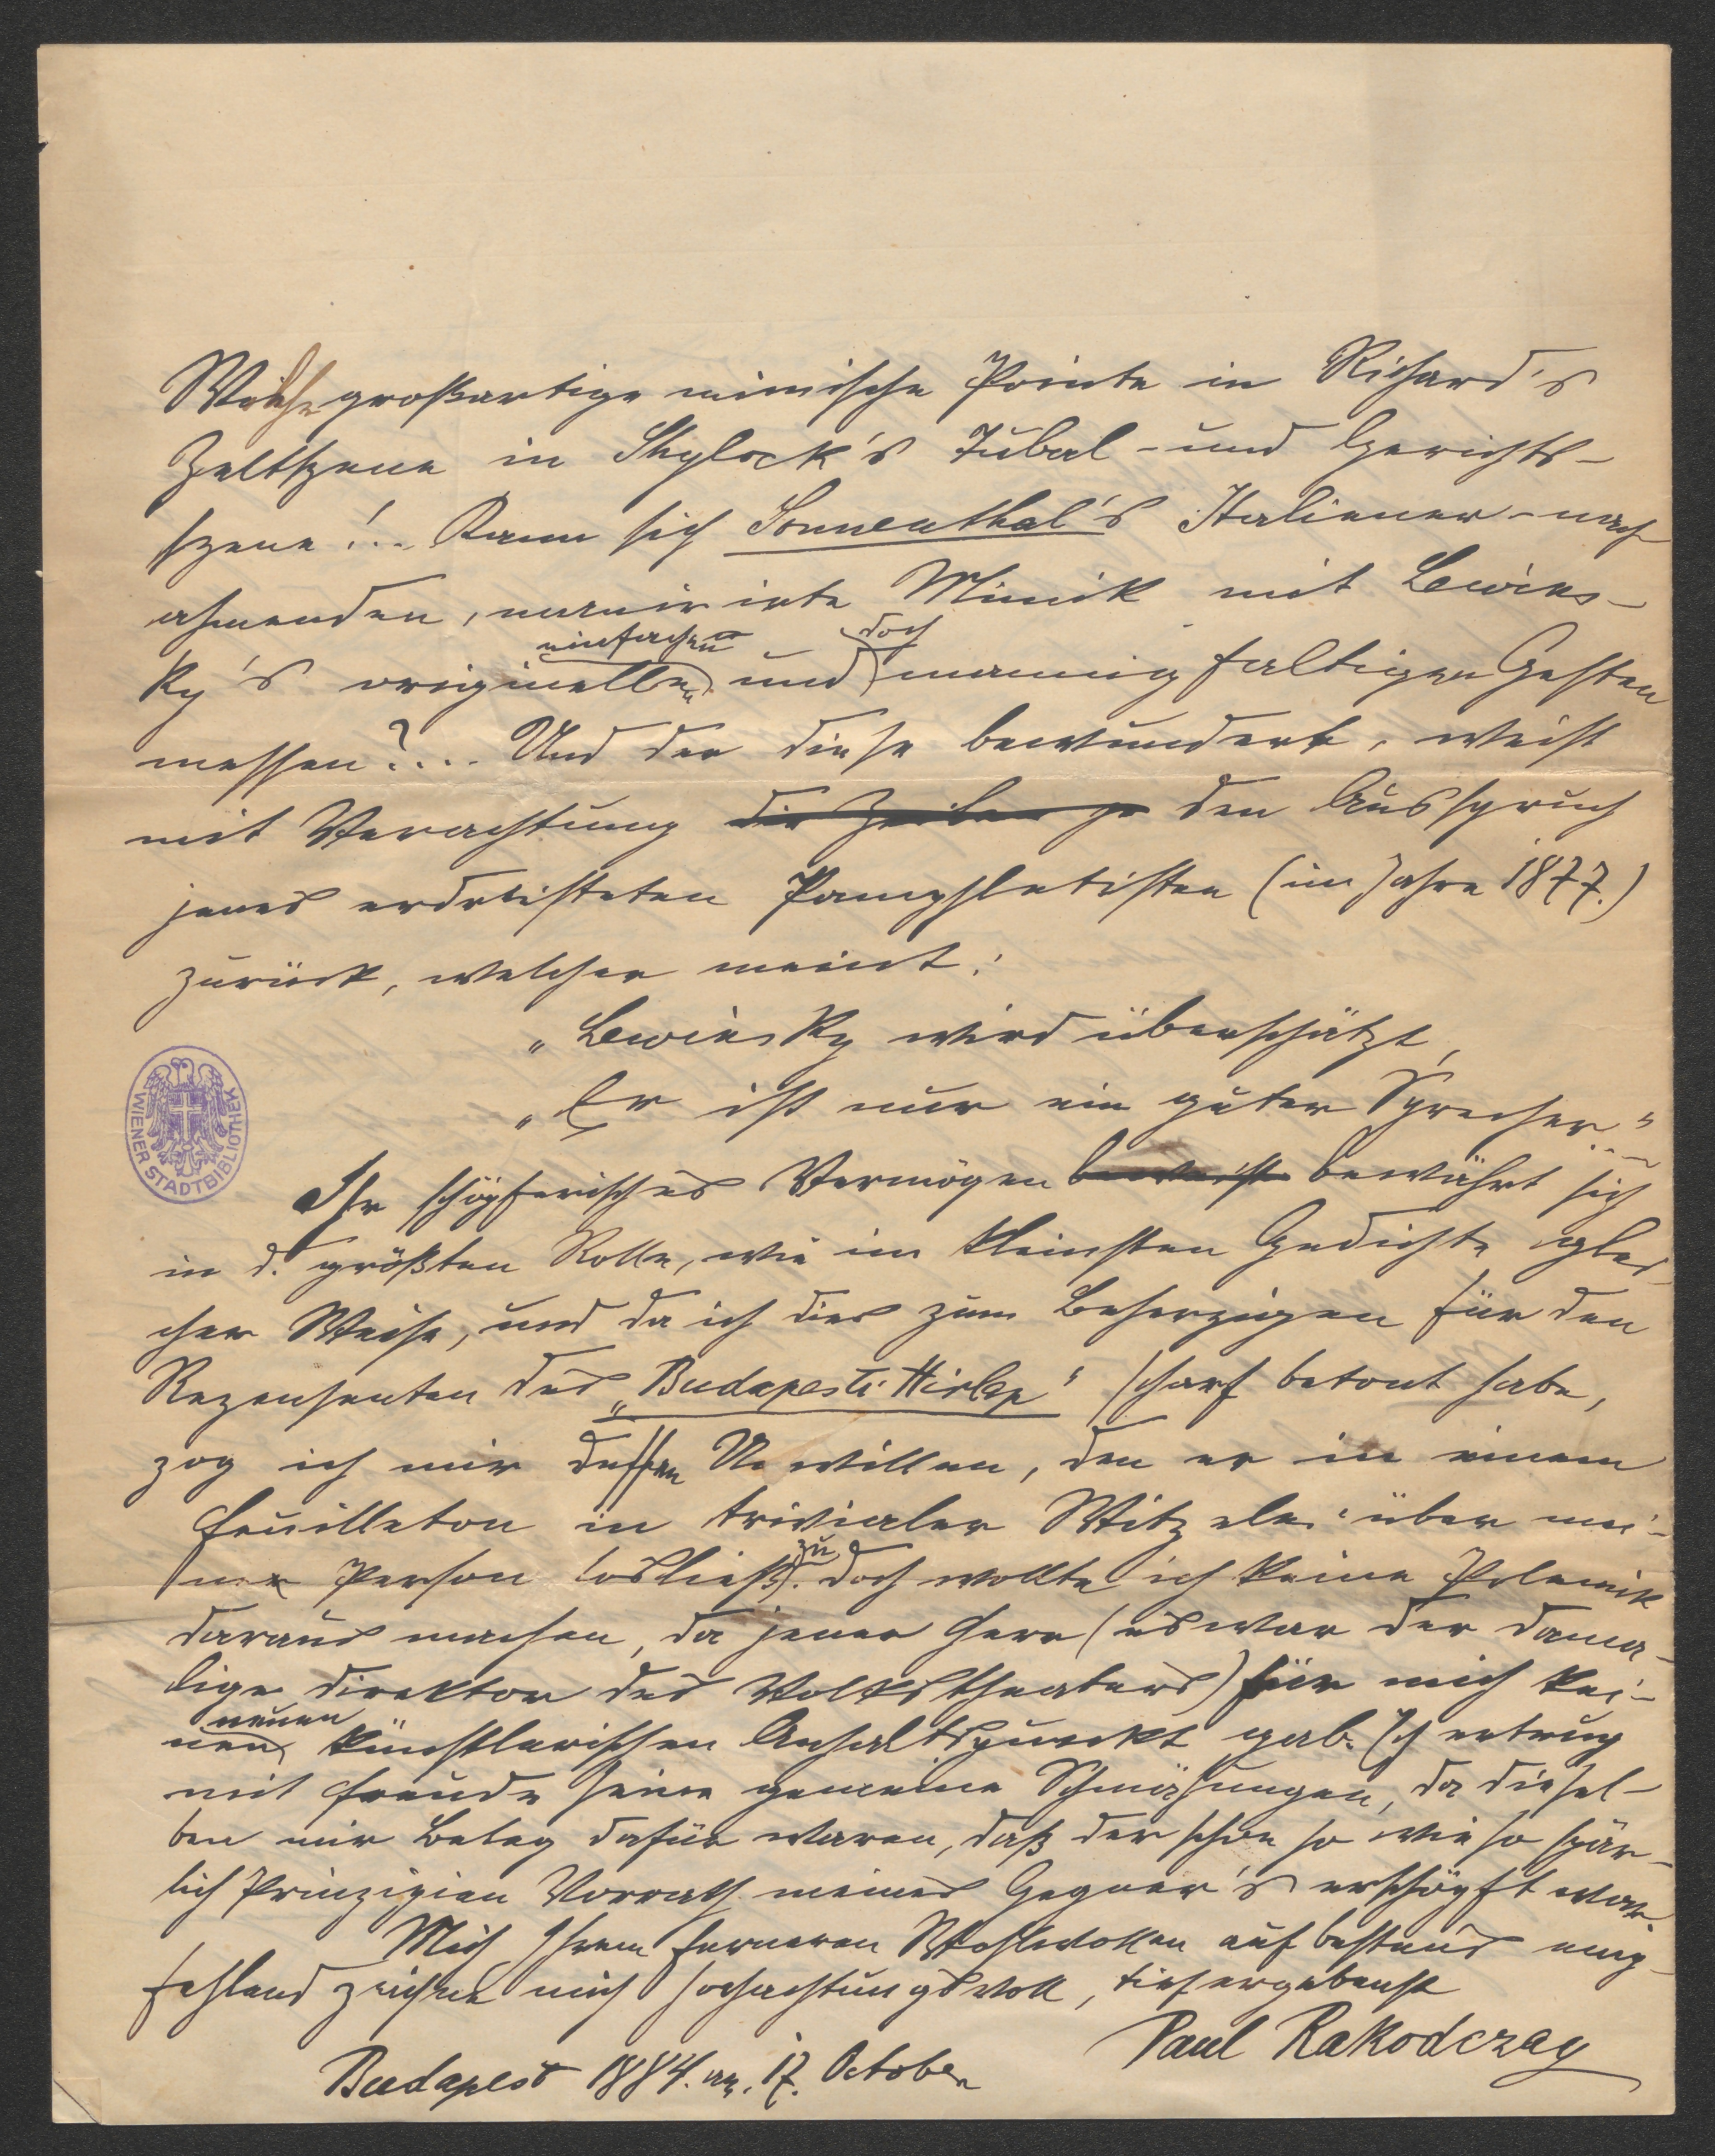 Welche großartige mimische Pointe in Richard's
Zeltszene in Shylock's Tubal- und Gerichts-
szene!.. Kann sich Sonnenthal's Italiener-nach
ahmenden, manirirte Mimik mit Lewins-
einfachen doch
ky's originellen und mannigfaltigen Gesten
messen?... Und der diese bewundert, weist
mit Verachtung den Ausspruch
jenes erdreisteten Pamphletisten (im Jahre 1877.)
zurück, welcher meint:
„Lewinsky wird überschätzt,
„Er ist nur ein guter Sprecher"
WIENER STADTBIBLIOTHEK
Ihr schöpferisches Vermögen beweist bewährt sich
in d. größten Rolle, wie im kleinsten Gedichte glei-
cher Weise, und da ich dies zum Beherzigen für den
Rezensenten des „Budapesti Hirlap" scharf betont habe,
zog ich mir dessen Unwillen, den er in einem
Feuilleton in trivialer Witzelei über mei-
zu
ner Person losließ. Doch wollte ich keine Polemik
daraus machen, da jener Herr (es war der dama-
lige Direktor des Volkstheaters) für mich kei-
neuen
nen künstlerischen Anhaltspunkt gab. Ich ertrug
mit Freude seine gemeine Schmähungen, da diesel-
ben mir Beleg dafür waren, daß der schon so wie so spär-
lich Prinzipien Vorrath meines Gegner's erschöpft war.
Mich Ihrem ferneren Wohlwollen auf bestens emp-
fehlend zeichne mich hochachtungsvoll, tiefergebenst
Paul Rakodczay
Budapest 1884. am. 17. October